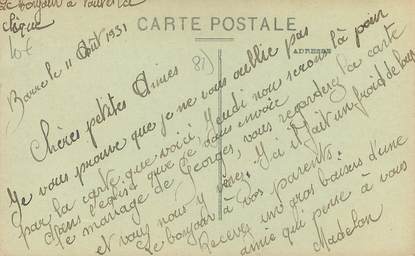 Le bonjour à toute la
clique
CARTE POSTALE
ADRESSE
Barre le 11 Août 1931
Chères petites Amies
Je vous prouve que je ne vous oublie pas
par la carte que voici. Jeudi nous serons là pour
dans l'église que je vous envoie
le mariage de Georges, vous regarderez la carte
et vous nous y Ici il fait un froid de loup
le bonjour à vos parents.
Recevez un gros baisers d'une
amie qui pense à vous
Madelon